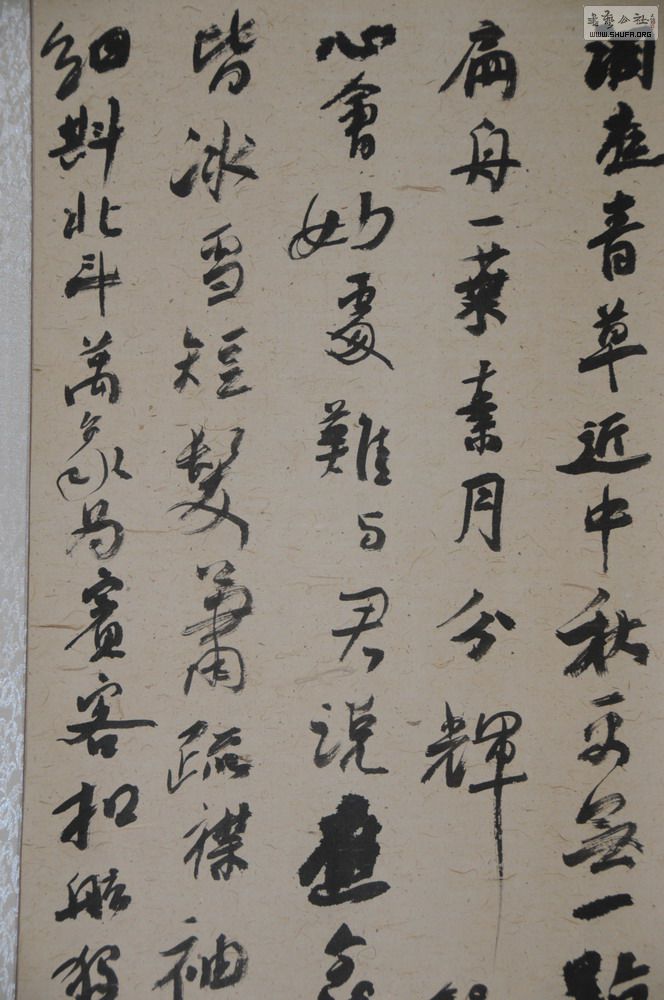 書藝公社
WWW.SHUFA.ORG
洞庭青草近中秋更無一點
扁舟一葉素月分輝
心會妙處難与君説應念
皆冰雪短髮蕭疏襟袖
細斟北斗萬象為賓客扣舷獨